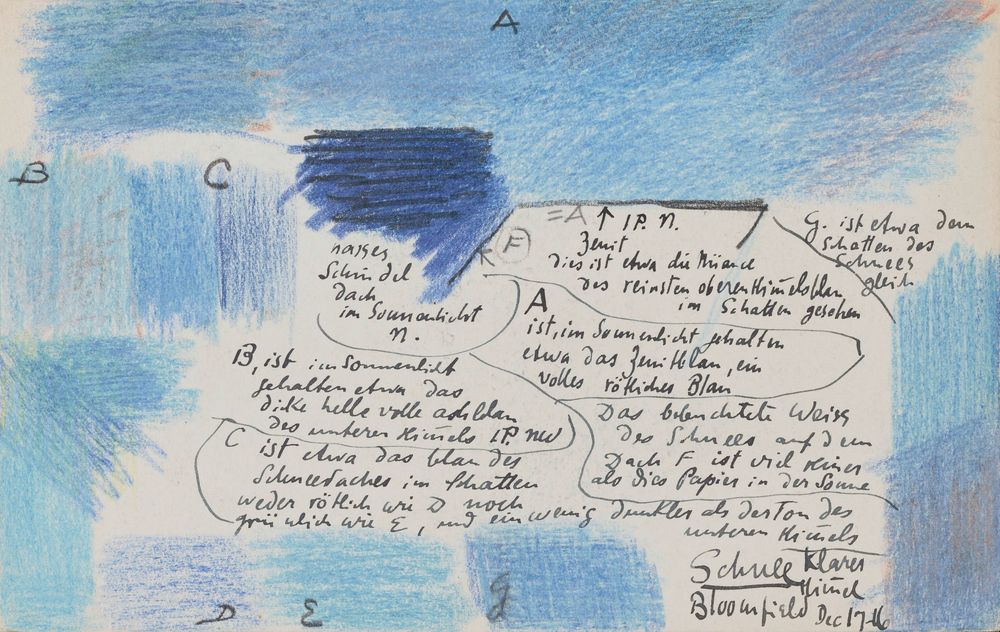 A
B
C
F
=A ↑ 1 P. N.
Zenit
dies ist etwa die Nüance
des reinsten oberen Himelsblau
im Schatten gesehen
G. ist etwa dem
Schatten des
Schnees
gleich
nasses
Schindel
Dach
im Sonnenlicht
N.
A
ist, im Sonnenlicht gehalten
etwa das Zenitblau, ein
volles rötliches Blau
B, ist im Sonnenlicht
gehalten etwa das
dicke helle volle
des unteren Himels 1 P. NW
C
ist etwa das blau des
Schneedaches im Schatten
weder rötlich wie D noch
grünlich wie E, und ein wenig dunkler als der Ton des
unteren Himels
Das beleuchtete Weiss
des Schnees auf dem
Dach F ist viel reiner
als dies Papier in der Sonne
Schnee Klarer
Himel
Bloomfield Dec 17-16
D
E
g